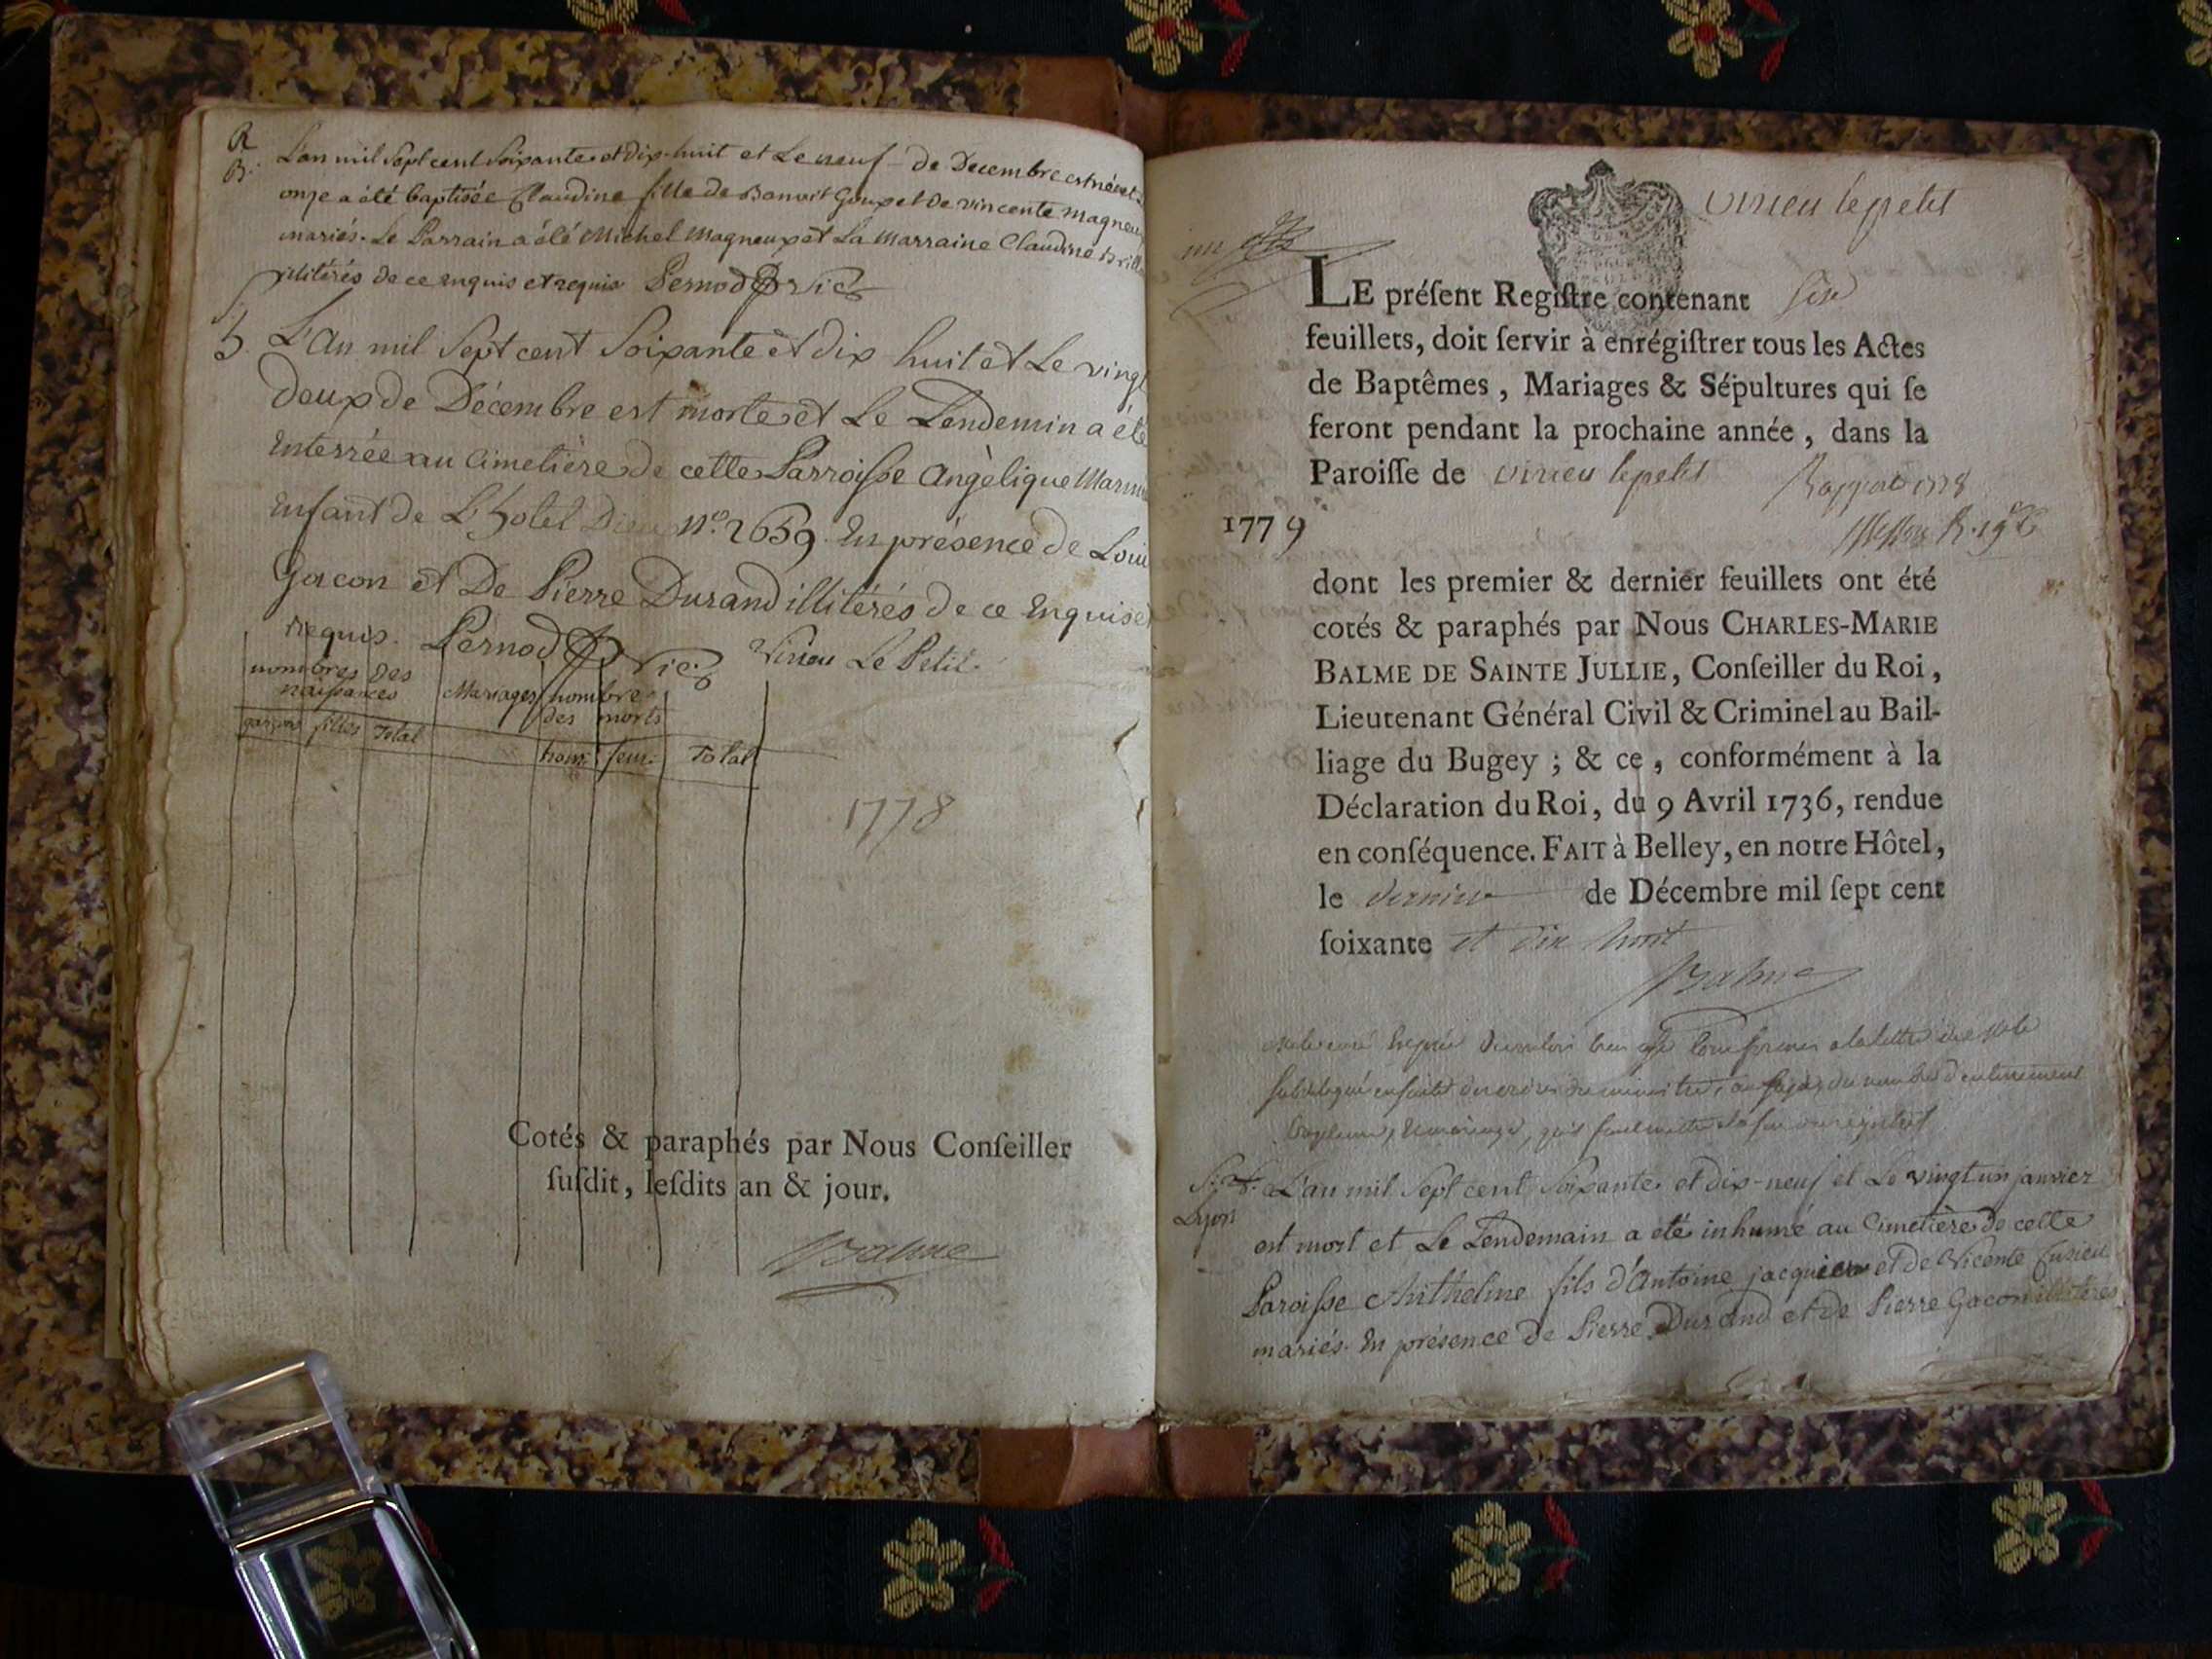 R
B.
L'an mil Sept cent Soixante et dix-huit et Le neuf de Decembre est née et
onze a été baptisée Claudine fille de Benoit Goux et De vincente magneu
mariés. Le Parrain a élé Michel Magneux et La Marraine Claudine
illitérés de ce enquis et requis Pernod vic
S. L'An mil Sept cent Soixante et dix huit et Le vingt
Deux de Décembre est morte et Le Lendemin a été
Enterrée au Cimetière de cette Parroisse Angèlique
Enfant de L'hotel Dieu N.º 2659. En présence de Loui
Gacon et De Pierre Durand illitérés de ce Enquis et
requis. Pernod Vic
Virieu Le Petit.
nombres Des naissances
Mariages
nombre des morts
garçons filles Total
hom. fem. Total
1778
Cotés & paraphés par Nous Conſeiller
ſuſdit, leſdits an & jour.
Balme
virieu le petit
LE préſent Regiſtre contenant six
feuillets, doit ſervir à enrégiſtrer tous les Actes
de Baptêmes, Mariages & Sépultures qui ſe
feront pendant la prochaine année, dans la
Paroiſſe de virieu le petit
1779
dont les premier & dernier feuillets ont été
cotés & paraphés par Nous CHARLES-MARIE
BALME DE SAINTE JULLIE, Conſeiller du Roi,
Lieutenant Général Civil & Criminel au Bail-
liage du Bugey ; & ce, conformément à la
Déclaration du Roi, du 9 Avril 1736, rendue
en conſéquence. FAIT à Belley, en notre Hôtel,
le dernier de Décembre mil ſept cent
ſoixante et dix huit
Balme
S.
Lyon
L'an mil Sept cent Soixante et dix-neuf et Le vingt un janvier
est mort et Le Lendemain a été inhumé au Cimetière de cette
Paroisse Anthelme fils d'Antoine jacquier et de Vicente
mariés. En présence de Pierre Durand et de Pierre Gacon illitérés